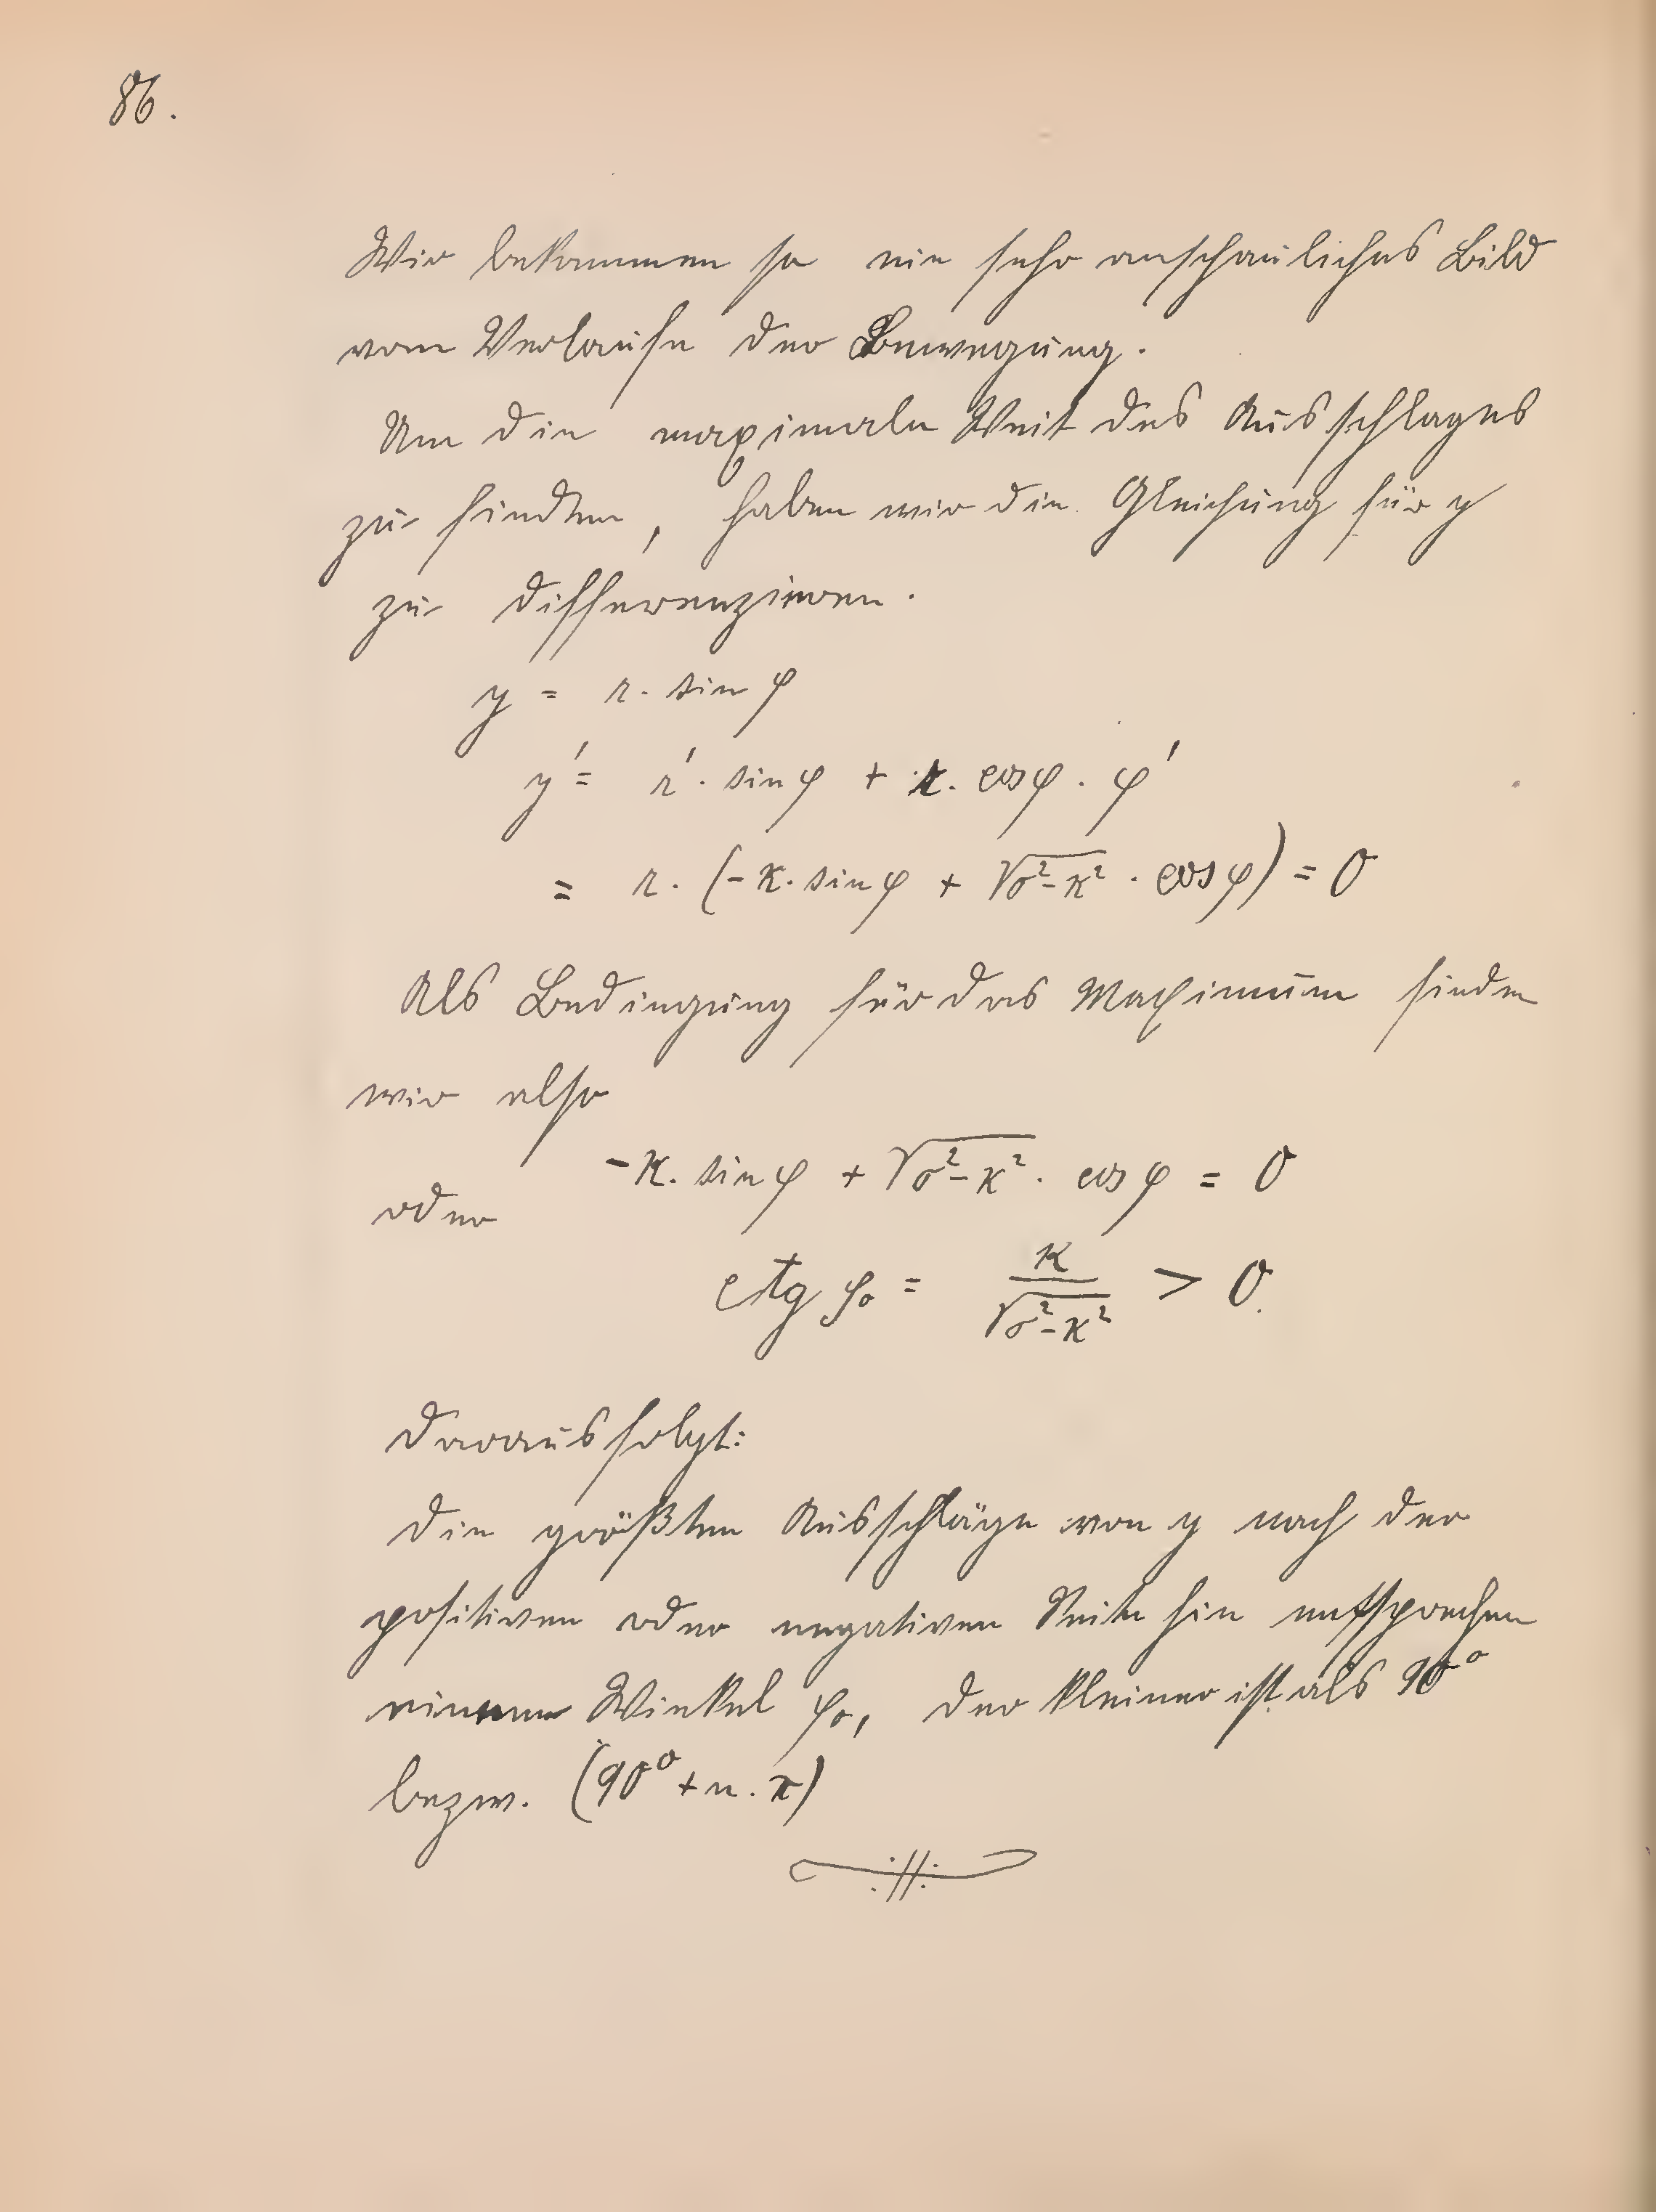 86.
Wir bekommen so ein sehr anschauliches Bild
vom Verlaufe der Bewegung.
Um die maximale Weit des Ausschlages
zu finden, haben wir die Gleichung für y
zu differenzieren.
y = r. sin φ
y' = r'. sin φ + r. cos φ . φ'
= r. (-κ. sin φ + √σ²-κ² . cos φ) = 0
Als Bedingung für das Maximum finden
wir also
-κ. sin φ + √σ²-κ² . cos φ = 0
oder
ctg φ₀ = κ / √σ²-κ² > 0.
Daraus folgt:
Die größten Ausschläge von y nach der
positiven oder negativen Seite hin entsprechen
einem Winkel φ₀, der kleiner ist als 90°
bezw. (90° + n . π)